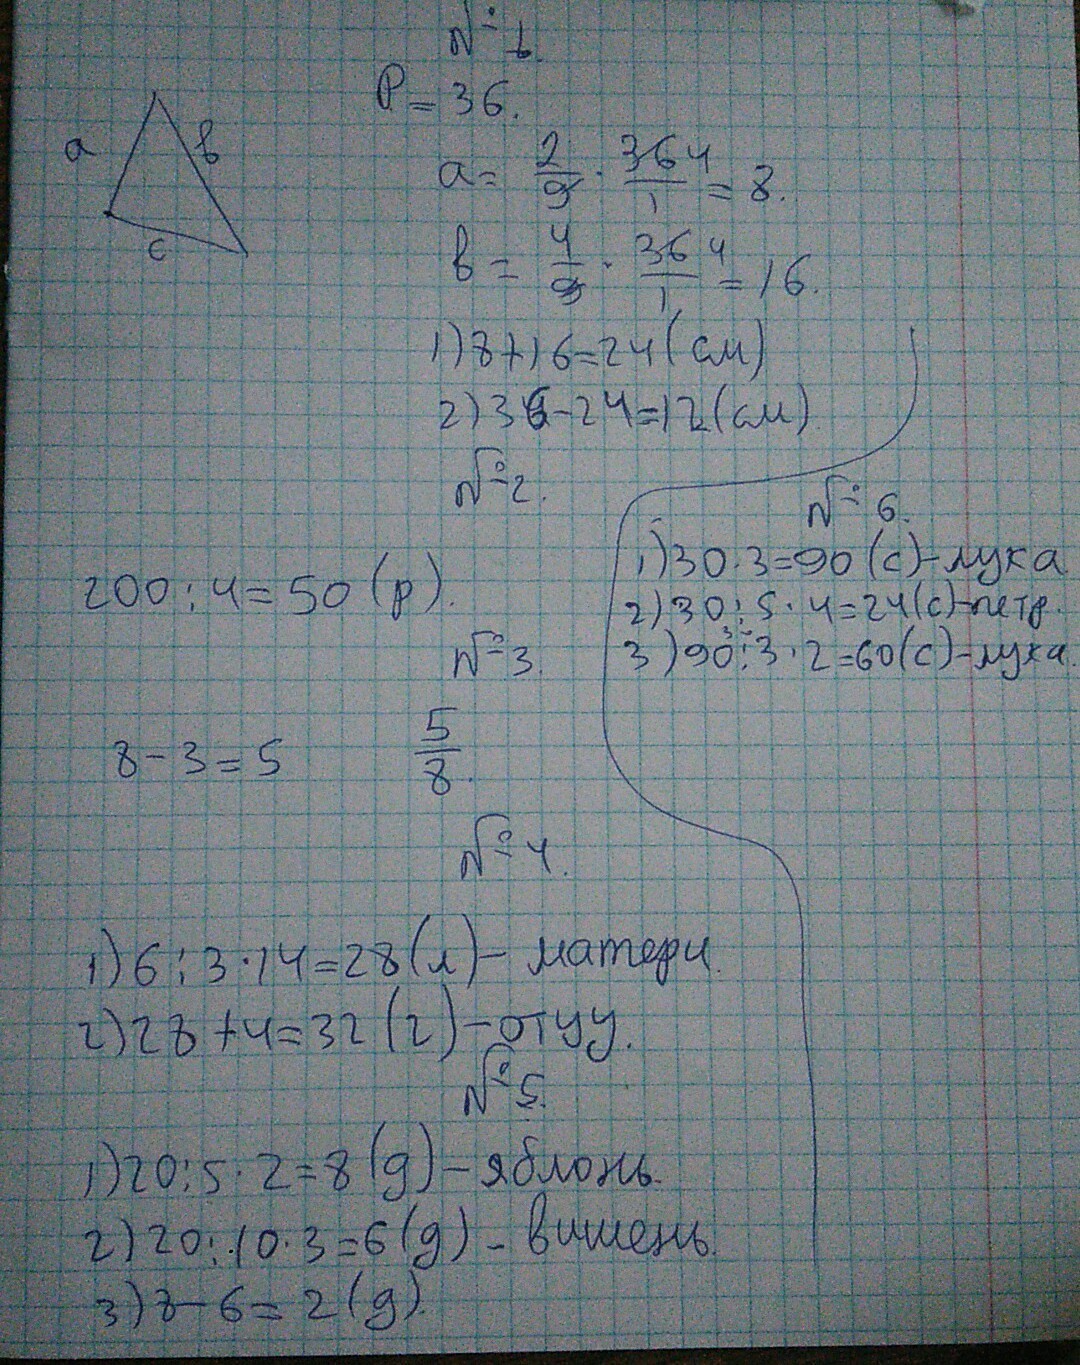 № 1.
P = 36.
a
в
c
a = 2/9 · 36 4/1 = 8.
в = 4/9 · 36 4/1 = 16.
1) 8+16=24 (см)
2) 36-24=12 (см)
№ 2.
200 : 4 = 50 (р).
№ 3.
8 - 3 = 5 5/8.
№ 4.
1) 6 : 3 · 14 = 28 (л) - матери.
2) 28 + 4 = 32 (г) - отцу.
№ 5.
1) 20 : 5 · 2 = 8 (д) - яблонь.
2) 20 : 10 · 3 = 6 (д) - вишень.
3) 8 - 6 = 2 (д).
№ 6.
1) 30 · 3 = 90 (с) - лука
2) 30 : 5 · 4 = 24 (с) - петр.
3) 90 : 3 · 2 = 60 (с) - лука.